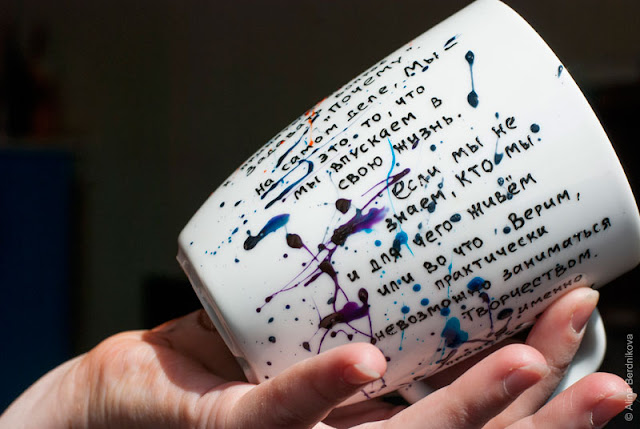 "Почему".
на самом деле. Мы –
это то, что
мы впускаем в
свою жизнь.
Если мы не
знаем КТО мы.
и для чего живём
или во что Верим,
практически
невозможно заниматься
творчеством.
именно
© Alina Berdnikova